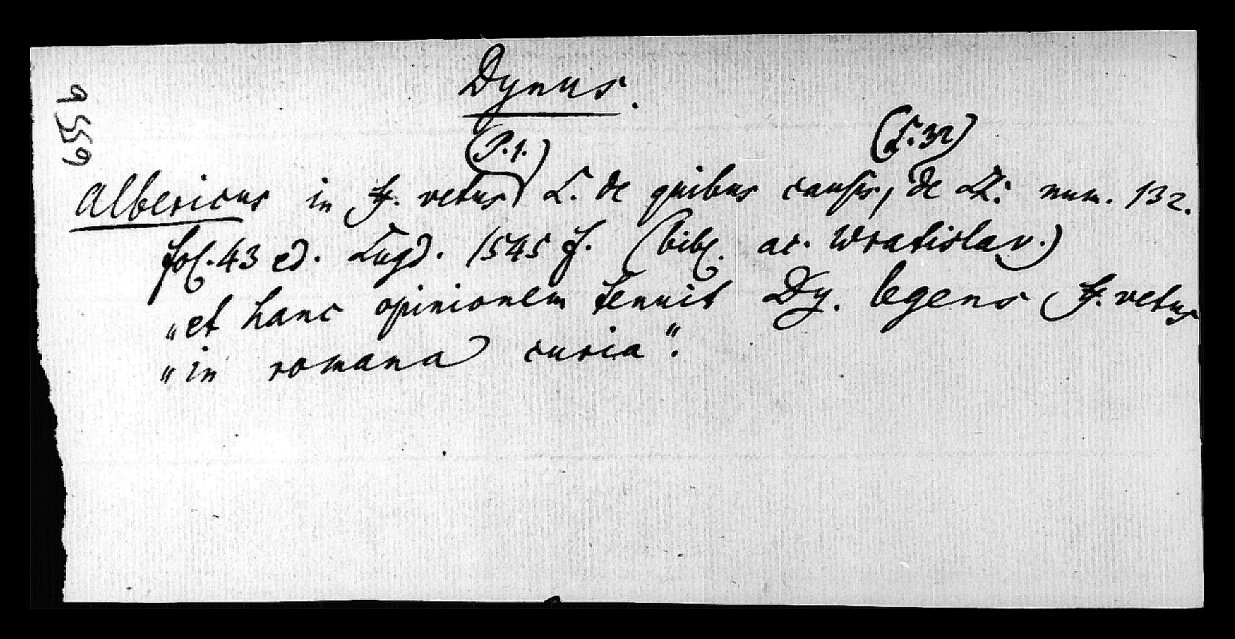 Dynus.
9559
(P. 1.) (L. 32)
Albericus in ff. vetus, L. de quibus causis, de LL. num. 132.
fol. 43 ed. Lugd. 1545 f. (bibl. ac. Wratislav.)
„et hanc opinionem tenuit Dy. legens ff. vetus
„in romana curia".